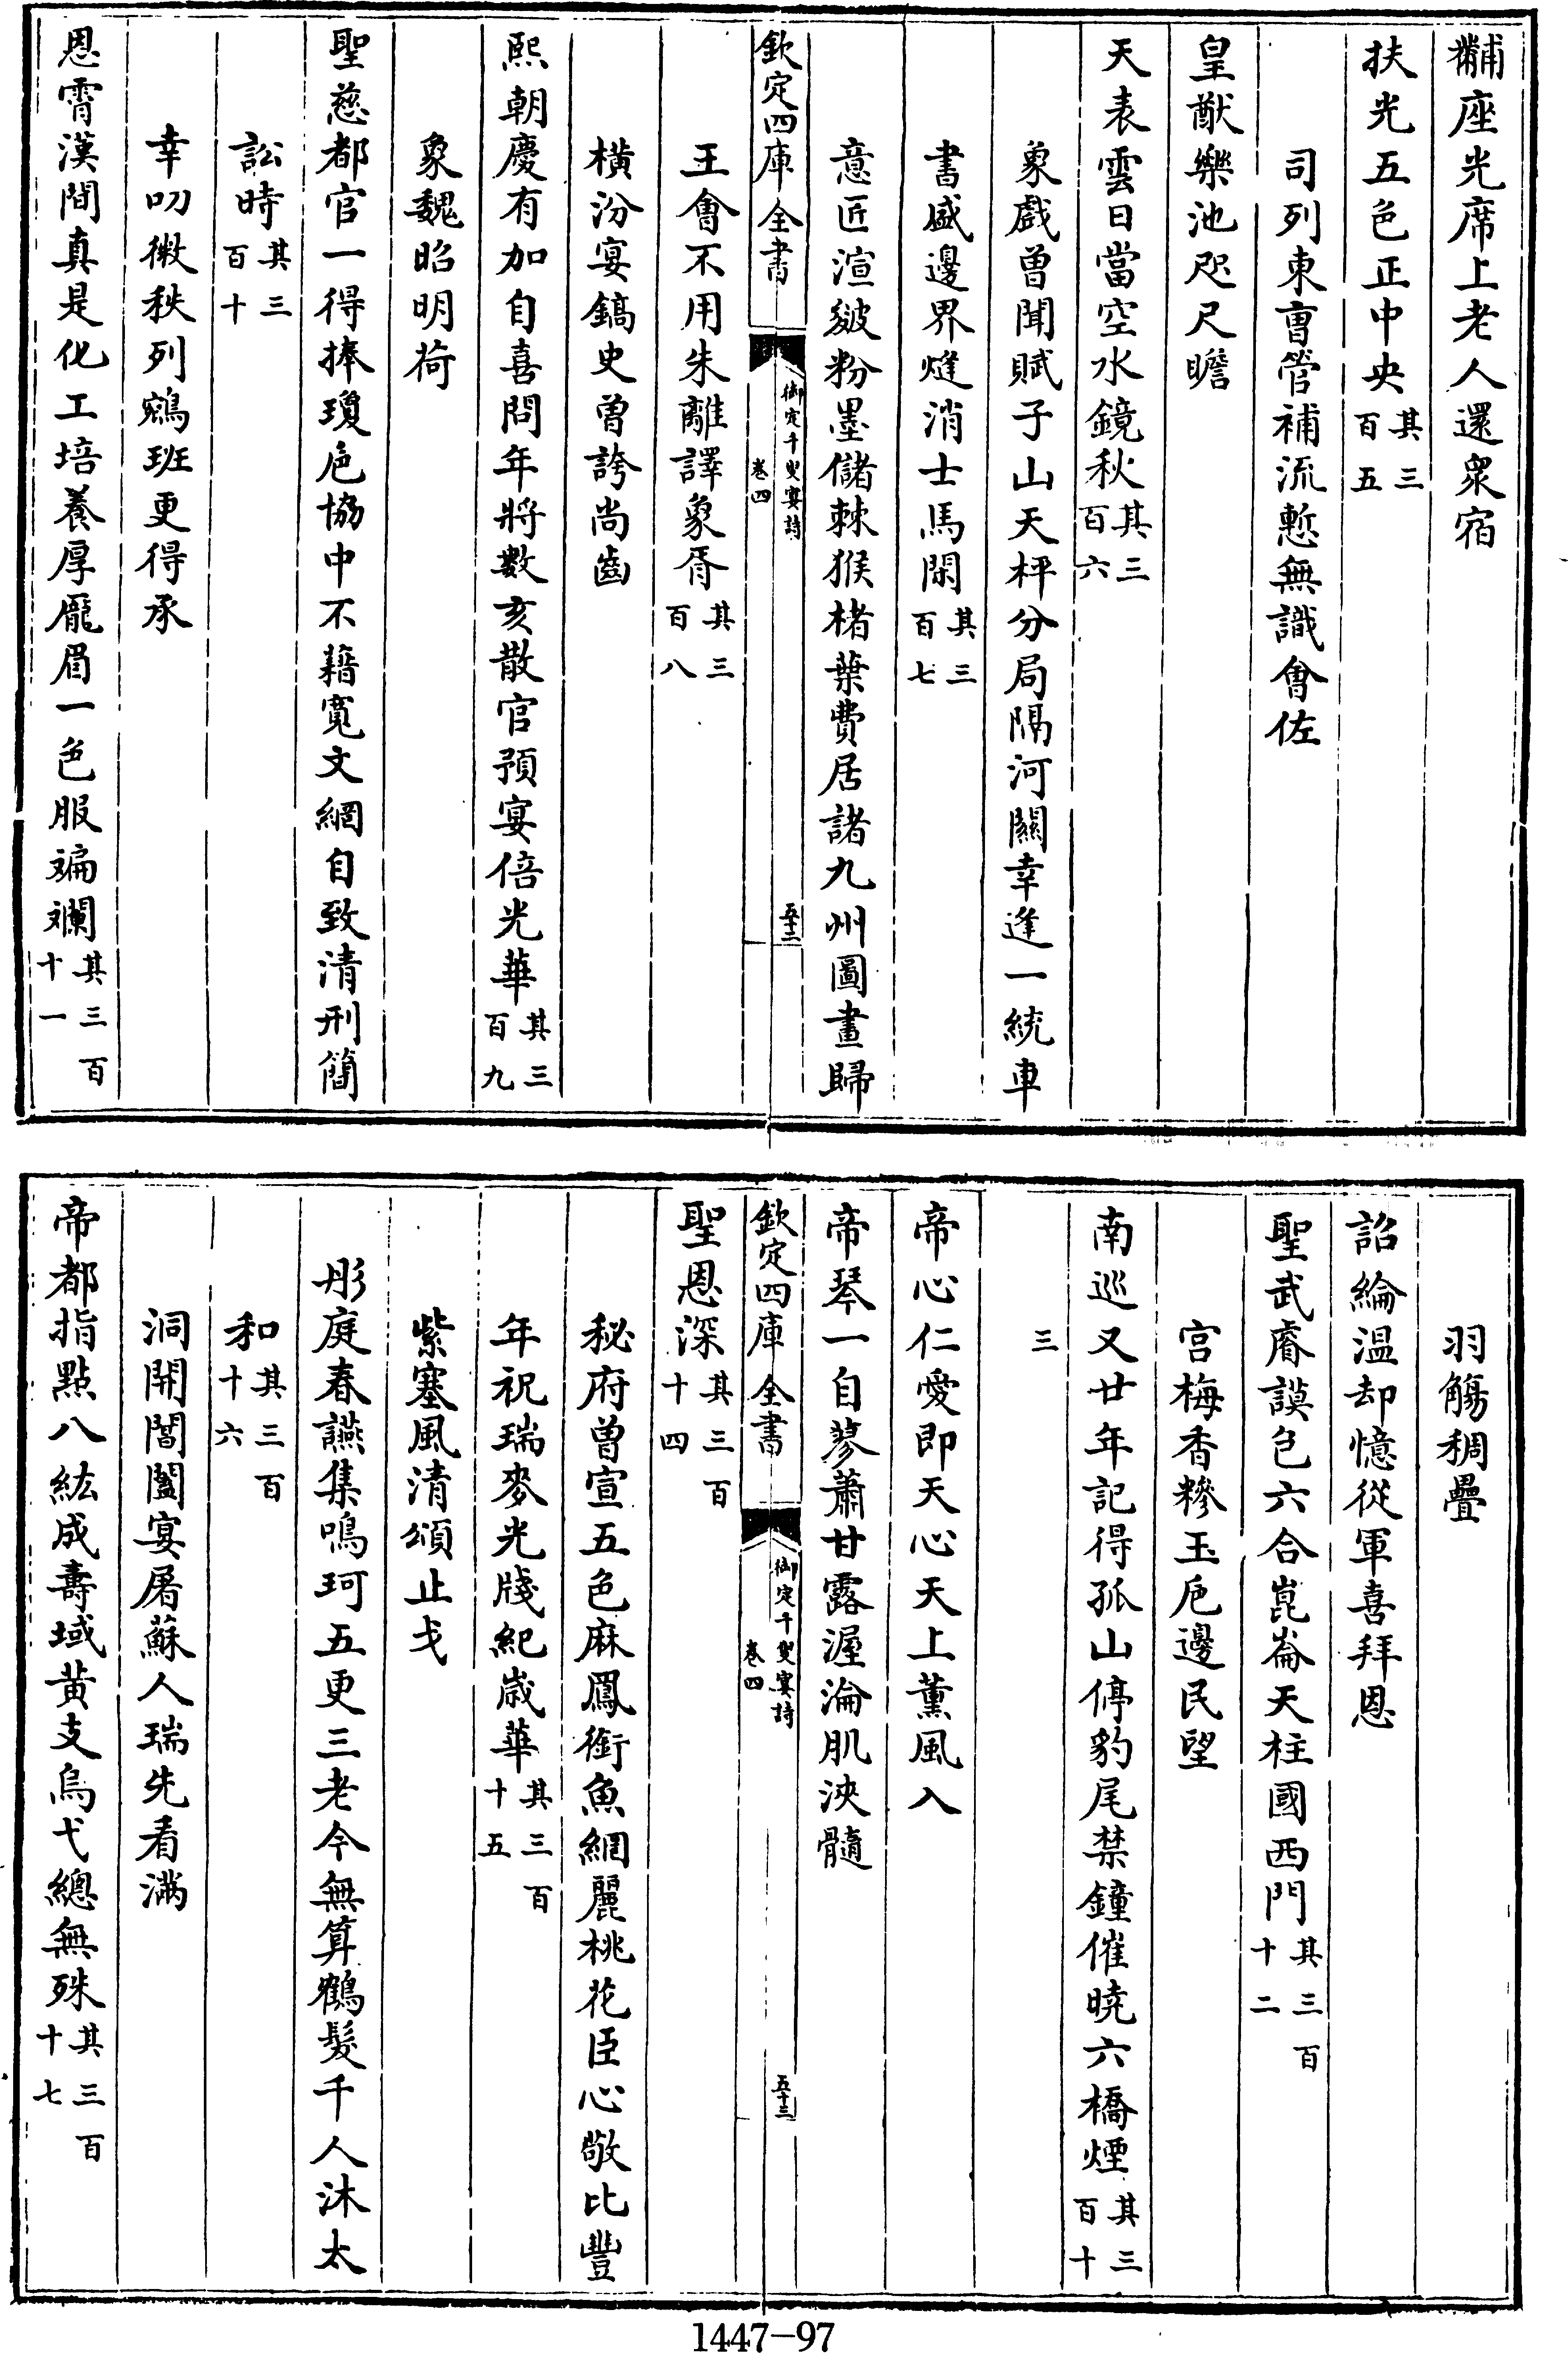 黼座光席上老人還衆宿
扶光五色正中央其三百五
司列東曹管補流慙無識會佐
皇猷樂池咫尺瞻
天表雲日當空水鏡秋其三百六
象戲曾聞賦子山天枰分局隔河關幸逢一統車
書盛邊界燧消士馬閑其三百七
意匠渲皴粉墨儲棘猴楮葉費居諸九州圖畫歸
欽定四庫全書
御定千叟宴詩
卷四
五十二
王會不用朱離譯象胥其三百八
橫汾宴鎬史曾誇尚齒
熙朝慶有加自喜問年將數亥散官預宴倍光華其三百九
象魏昭明荷
聖慈都官一得捧瓊巵協中不藉寛文網自致清刑簡
訟時其三百十
幸叨微秩列鵷班更得承
恩霄漢間真是化工培養厚龎眉一色服斒斕其三百十一
羽觴稠疊
詔綸温却憶從軍喜拜恩
聖武睿謨包六合崑崙天柱國西門其三百十二
宫梅香糝玉巵邊民望
南巡又廿年記得孤山停豹尾禁鐘催曉六橋煙其三百十
三
帝心仁愛即天心天上薰風入
帝琴一自蓼蕭甘露渥淪肌浹髓
欽定四庫全書
御定千叟宴詩
卷四
五十三
聖恩深其三百十四
秘府曾宣五色麻鳳銜魚網麗桃花臣心敬比豐
年祝瑞麥光牋紀歲華其三百十五
紫塞風清頌止戈
彤庭春讌集鳴珂五更三老今無算鶴髮千人沐太
和其三百十六
洞開閶闔宴屠蘇人瑞先看滿
帝都指點八紘成壽域黄支烏弋總無殊其三百十七
1447-97